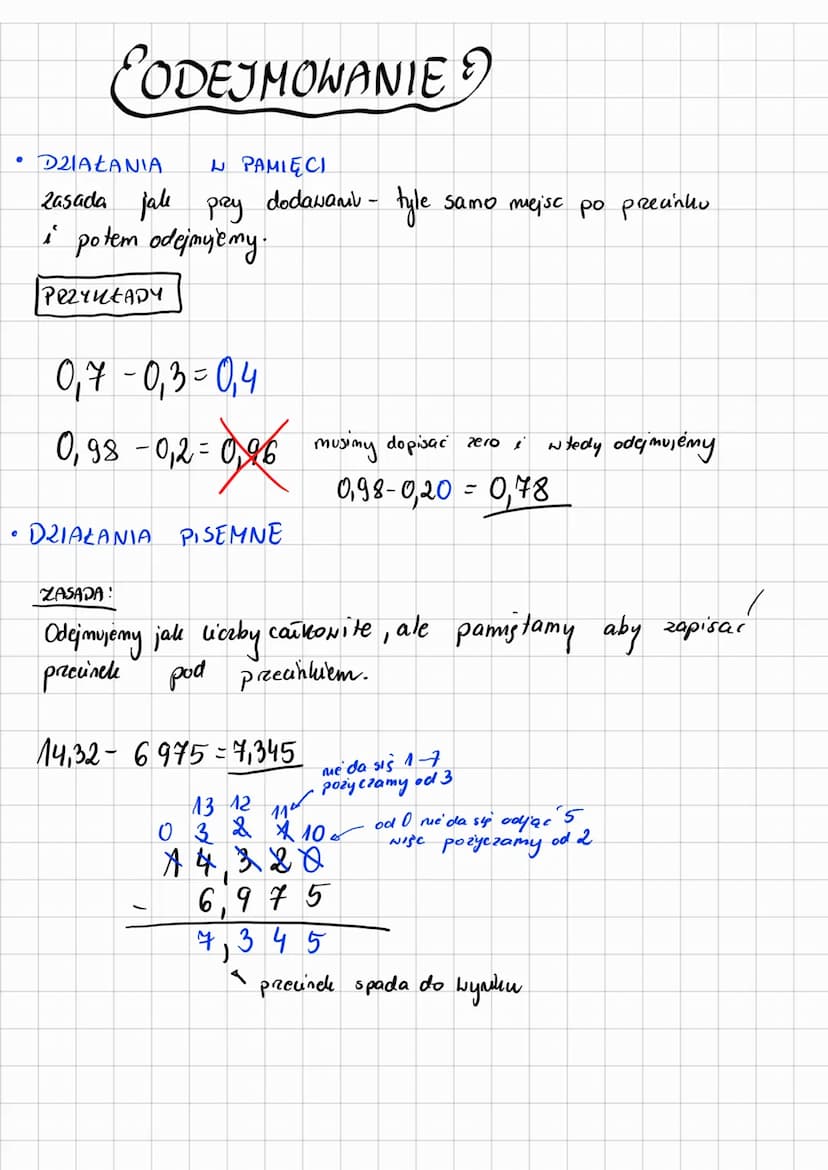 ODEJMOWANIE
• DZIAŁANIA W PAMIĘCI
zasada jak przy dodawaniu - tyle samo miejsc po przecinku
i potem odejmujemy.
PRZYKŁADY
0,7 - 0,3 = 0,4
0,98 - 0,2 = 0,96 musimy dopisać zero i wtedy odejmujemy
0,98 - 0,20 = 0,78
• DZIAŁANIA PISEMNE
ZASADA:
Odejmujemy jak liczby całkowite, ale pamiętamy aby zapisać
przecinek pod przecinkiem.
14,32 - 6 975 = 7,345
nie da się 1-7
pożyczamy od 3
13 12 11
od 0 nie da się odjąć 5
0 3 2 1 10
więc pożyczamy od 2
14,320
- 6,975
7,345
przecinek spada do wyniku